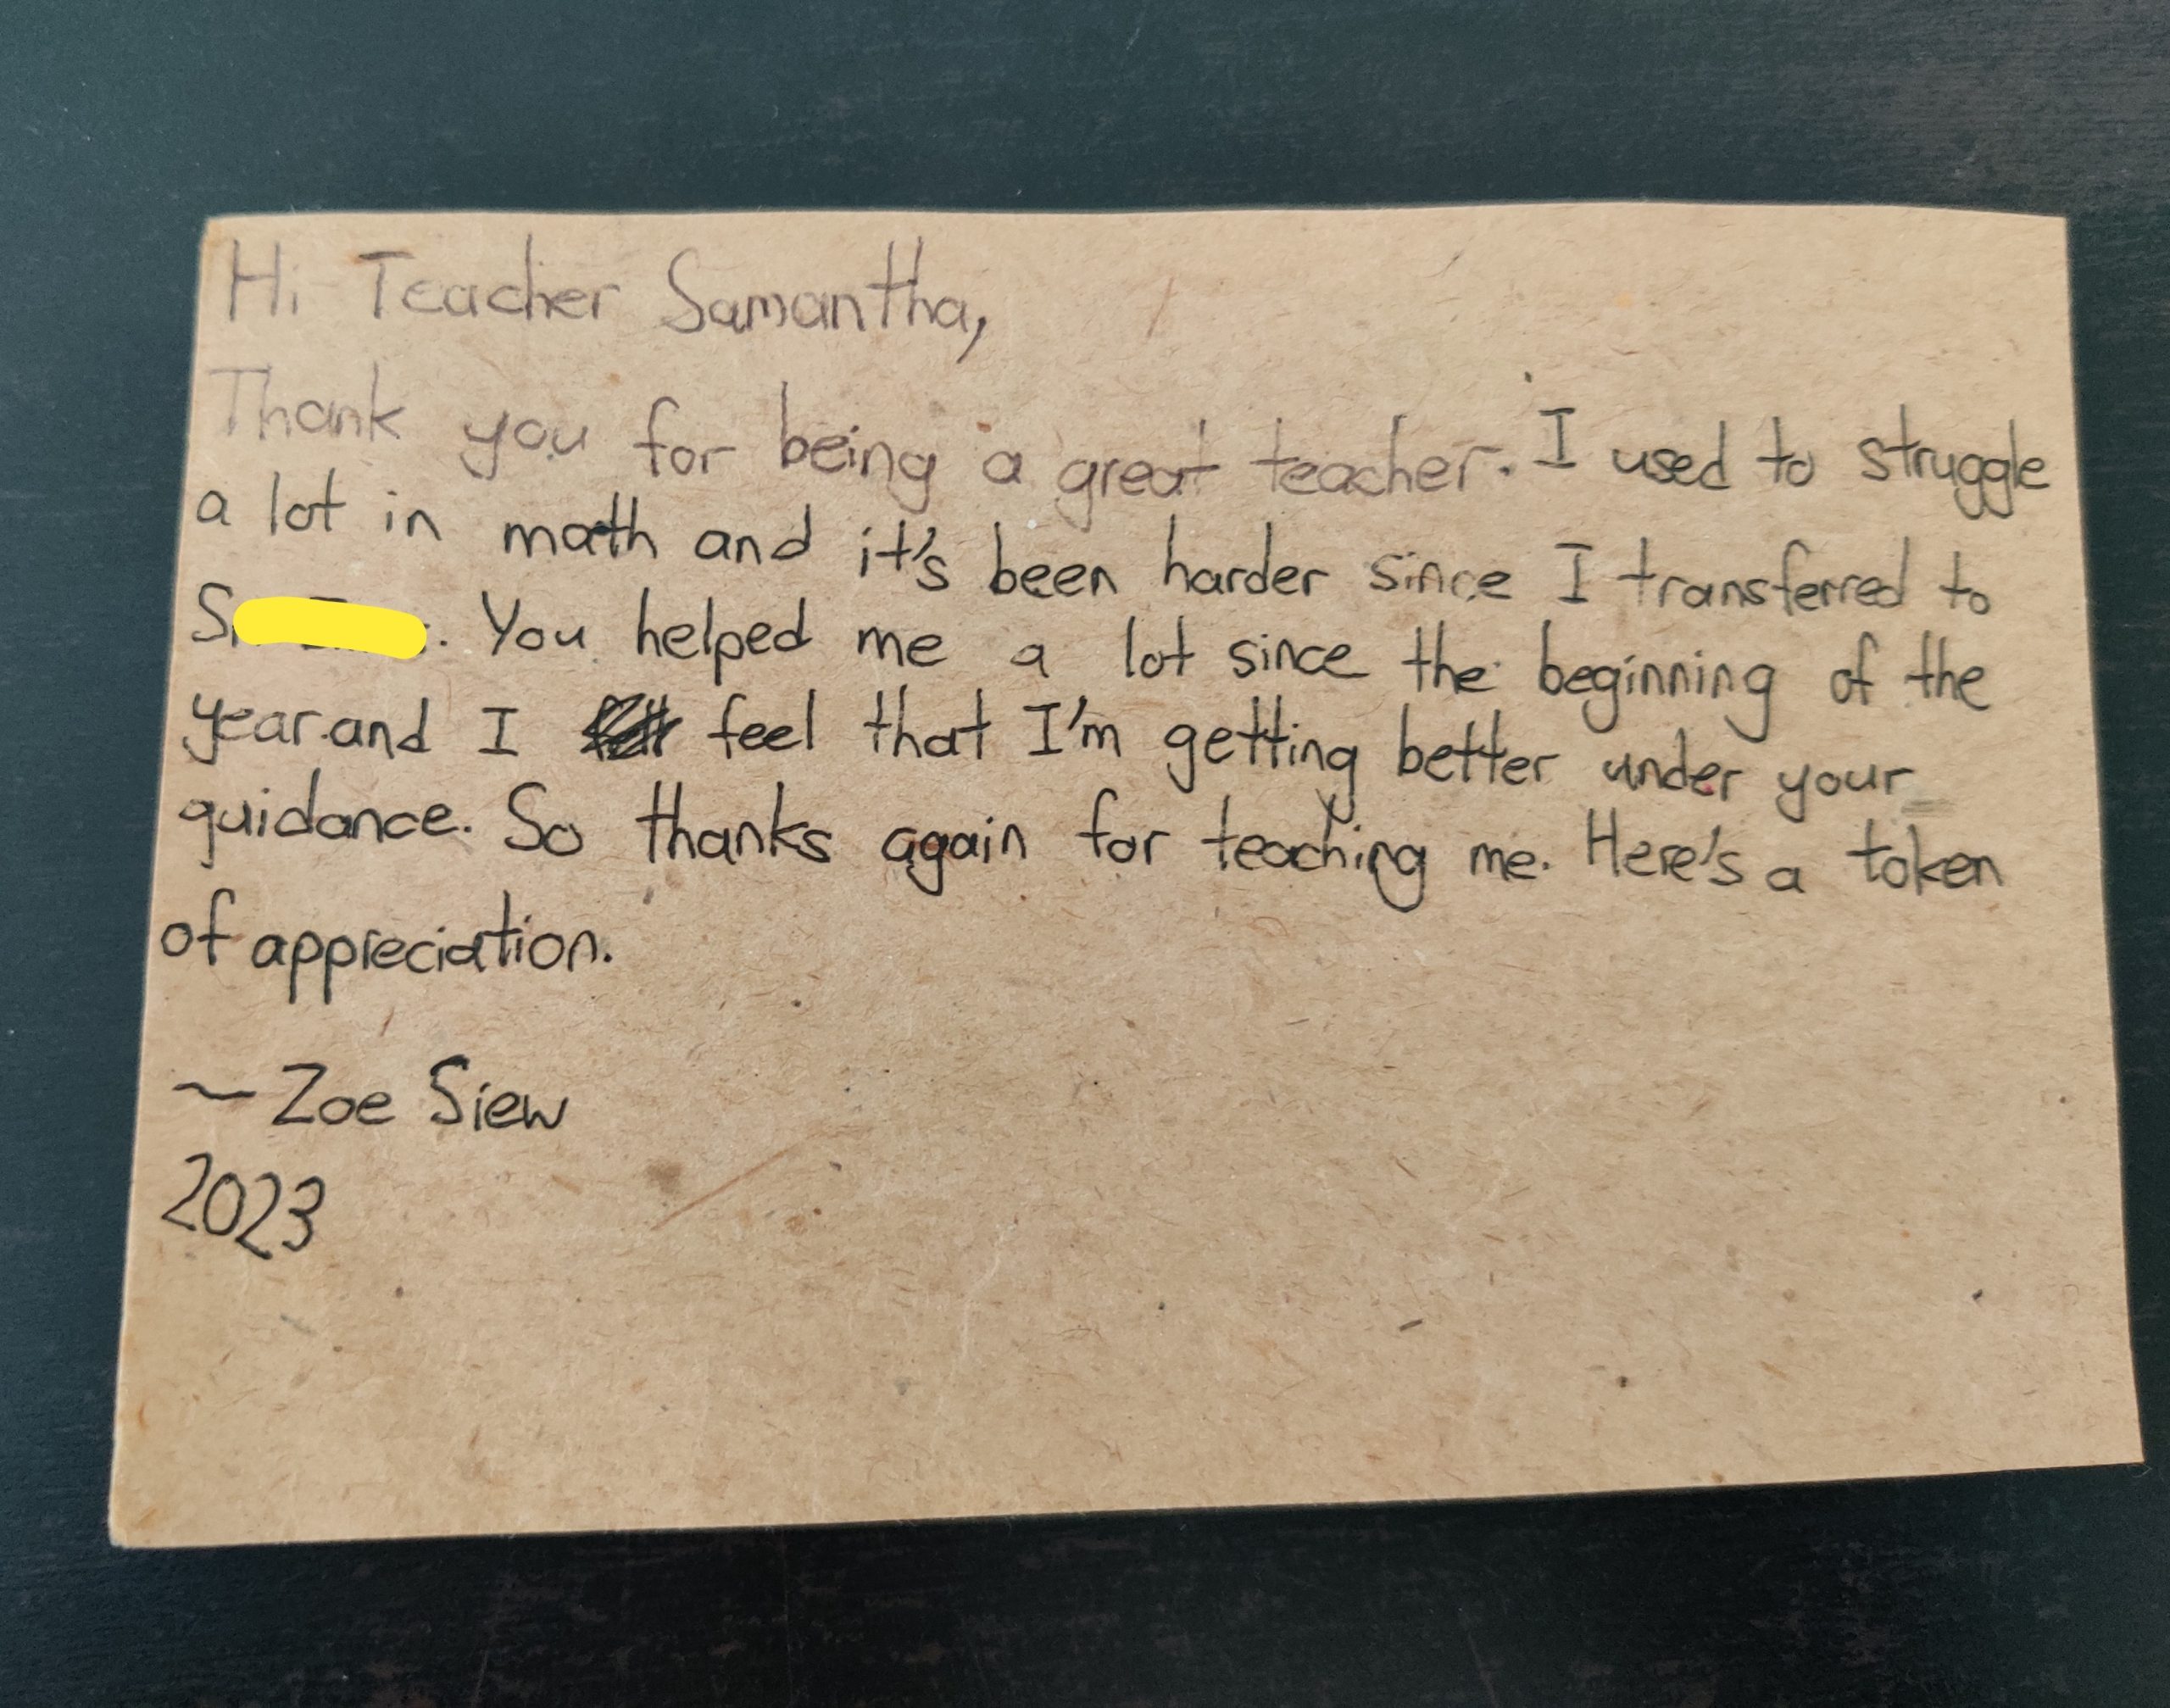 Hi Teacher Samantha,
Thank you for being a great teacher. I used to struggle
a lot in math and it's been harder since I transferred to
You helped me a lot since the beginning of the
year and I feel that I'm getting better under your
guidance. So thanks again for teaching me. Here's a token
of appreciation.
~ Zoe Siew
2023